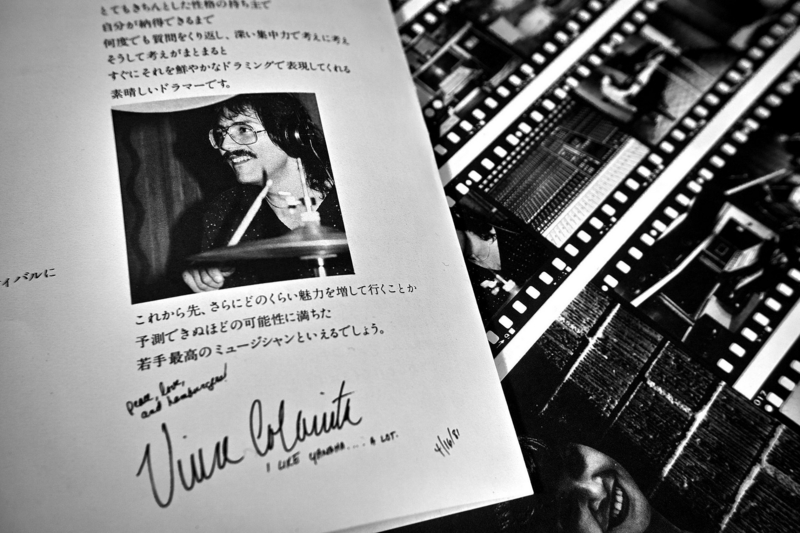 とてもきちんとした性格の持ち主で
自分が納得できるまで
何度でも質問をくり返し、深い集中力で考えに考え
そうして考えがまとまると
すぐにそれを鮮やかなドラミングで表現してくれる
素晴しいドラマーです。
ィバルに
これから先、さらにどのくらい魅力を増して行くことか
予測できぬほどの可能性に満ちた
若手最高のミュージシャンといえるでしょう。
peace, love,
and hamburgers!
Vinnie Colaiuta
I LIKE YAMAHA.... A LOT.
4/16/81